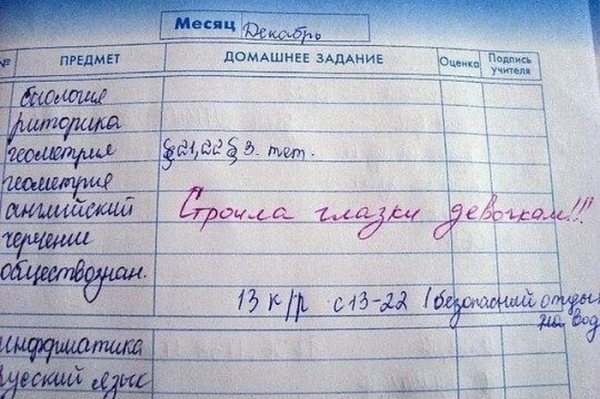 Месяц Декабрь
№ ПРЕДМЕТ ДОМАШНЕЕ ЗАДАНИЕ Оценка Подпись учителя
биология
риторика
геометрия §21,22 § 3. тет.
геометрия
английский Строила глазки девочкам!!!
черчение
обществознан.
13 к/р с 13-22 безопасний отды
на вод
информатика
русский язык